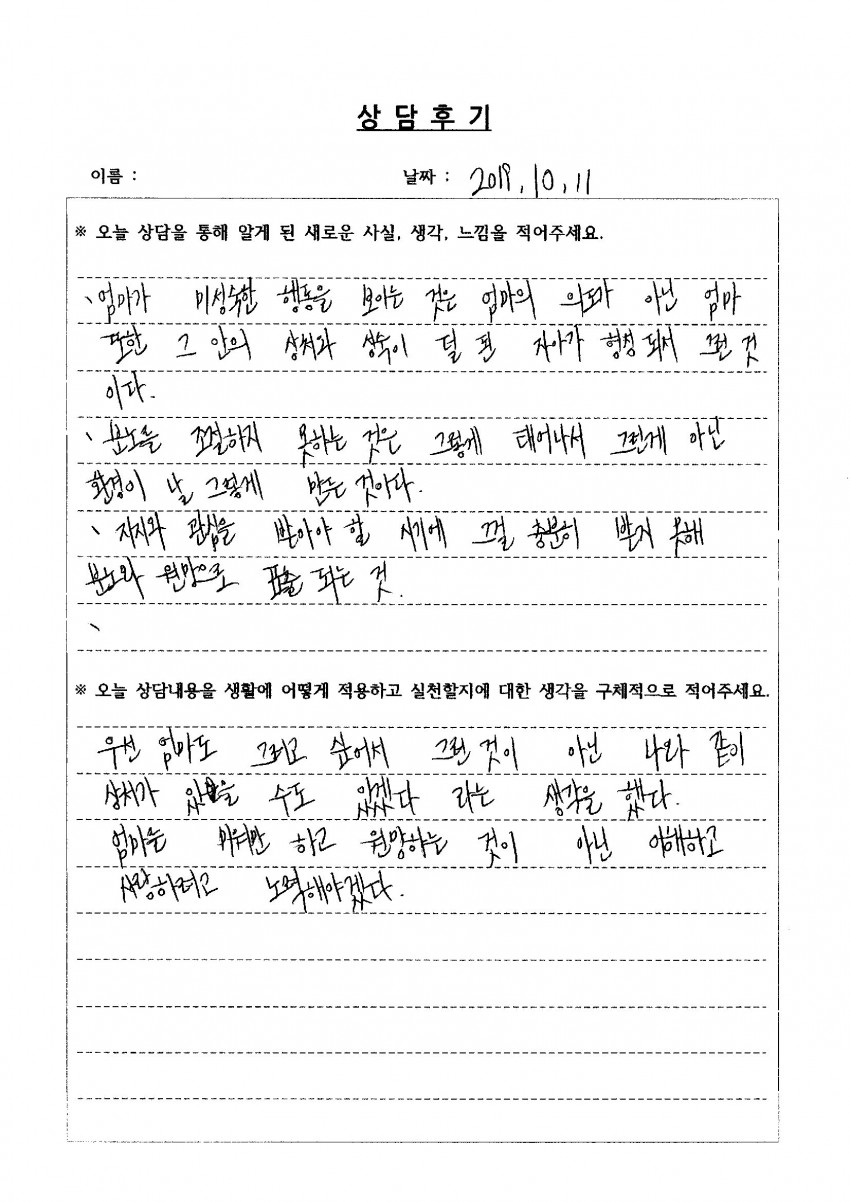 상 담 후 기
이름 : 날짜 : 2019. 10. 11
※ 오늘 상담을 통해 알게 된 새로운 사실, 생각, 느낌을 적어주세요.
、엄마가 미성숙한 행동을 보이는 것은 엄마의 의도가 아닌 엄마
또한 그 안의 상처와 성숙이 덜 된 자아가 형성 되서 그런 것
이다.
、분노를 조절하지 못하는 것은 그렇게 태어나서 그런게 아닌
환경이 날 그렇게 만든 것이다.
、지지와 관심을 받아야 할 시기에 그걸 충분히 받지 못해
분노와 원망으로 표출 되는 것.
、
※ 오늘 상담내용을 생활에 어떻게 적용하고 실천할지에 대한 생각을 구체적으로 적어주세요.
우선 엄마도 그러고 싶어서 그런 것이 아닌 나와 같이
상처가 있을 수도 있겠다 라는 생각을 했다.
엄마를 미워만 하고 원망하는 것이 아닌 이해하고
사랑하려고 노력해야겠다.